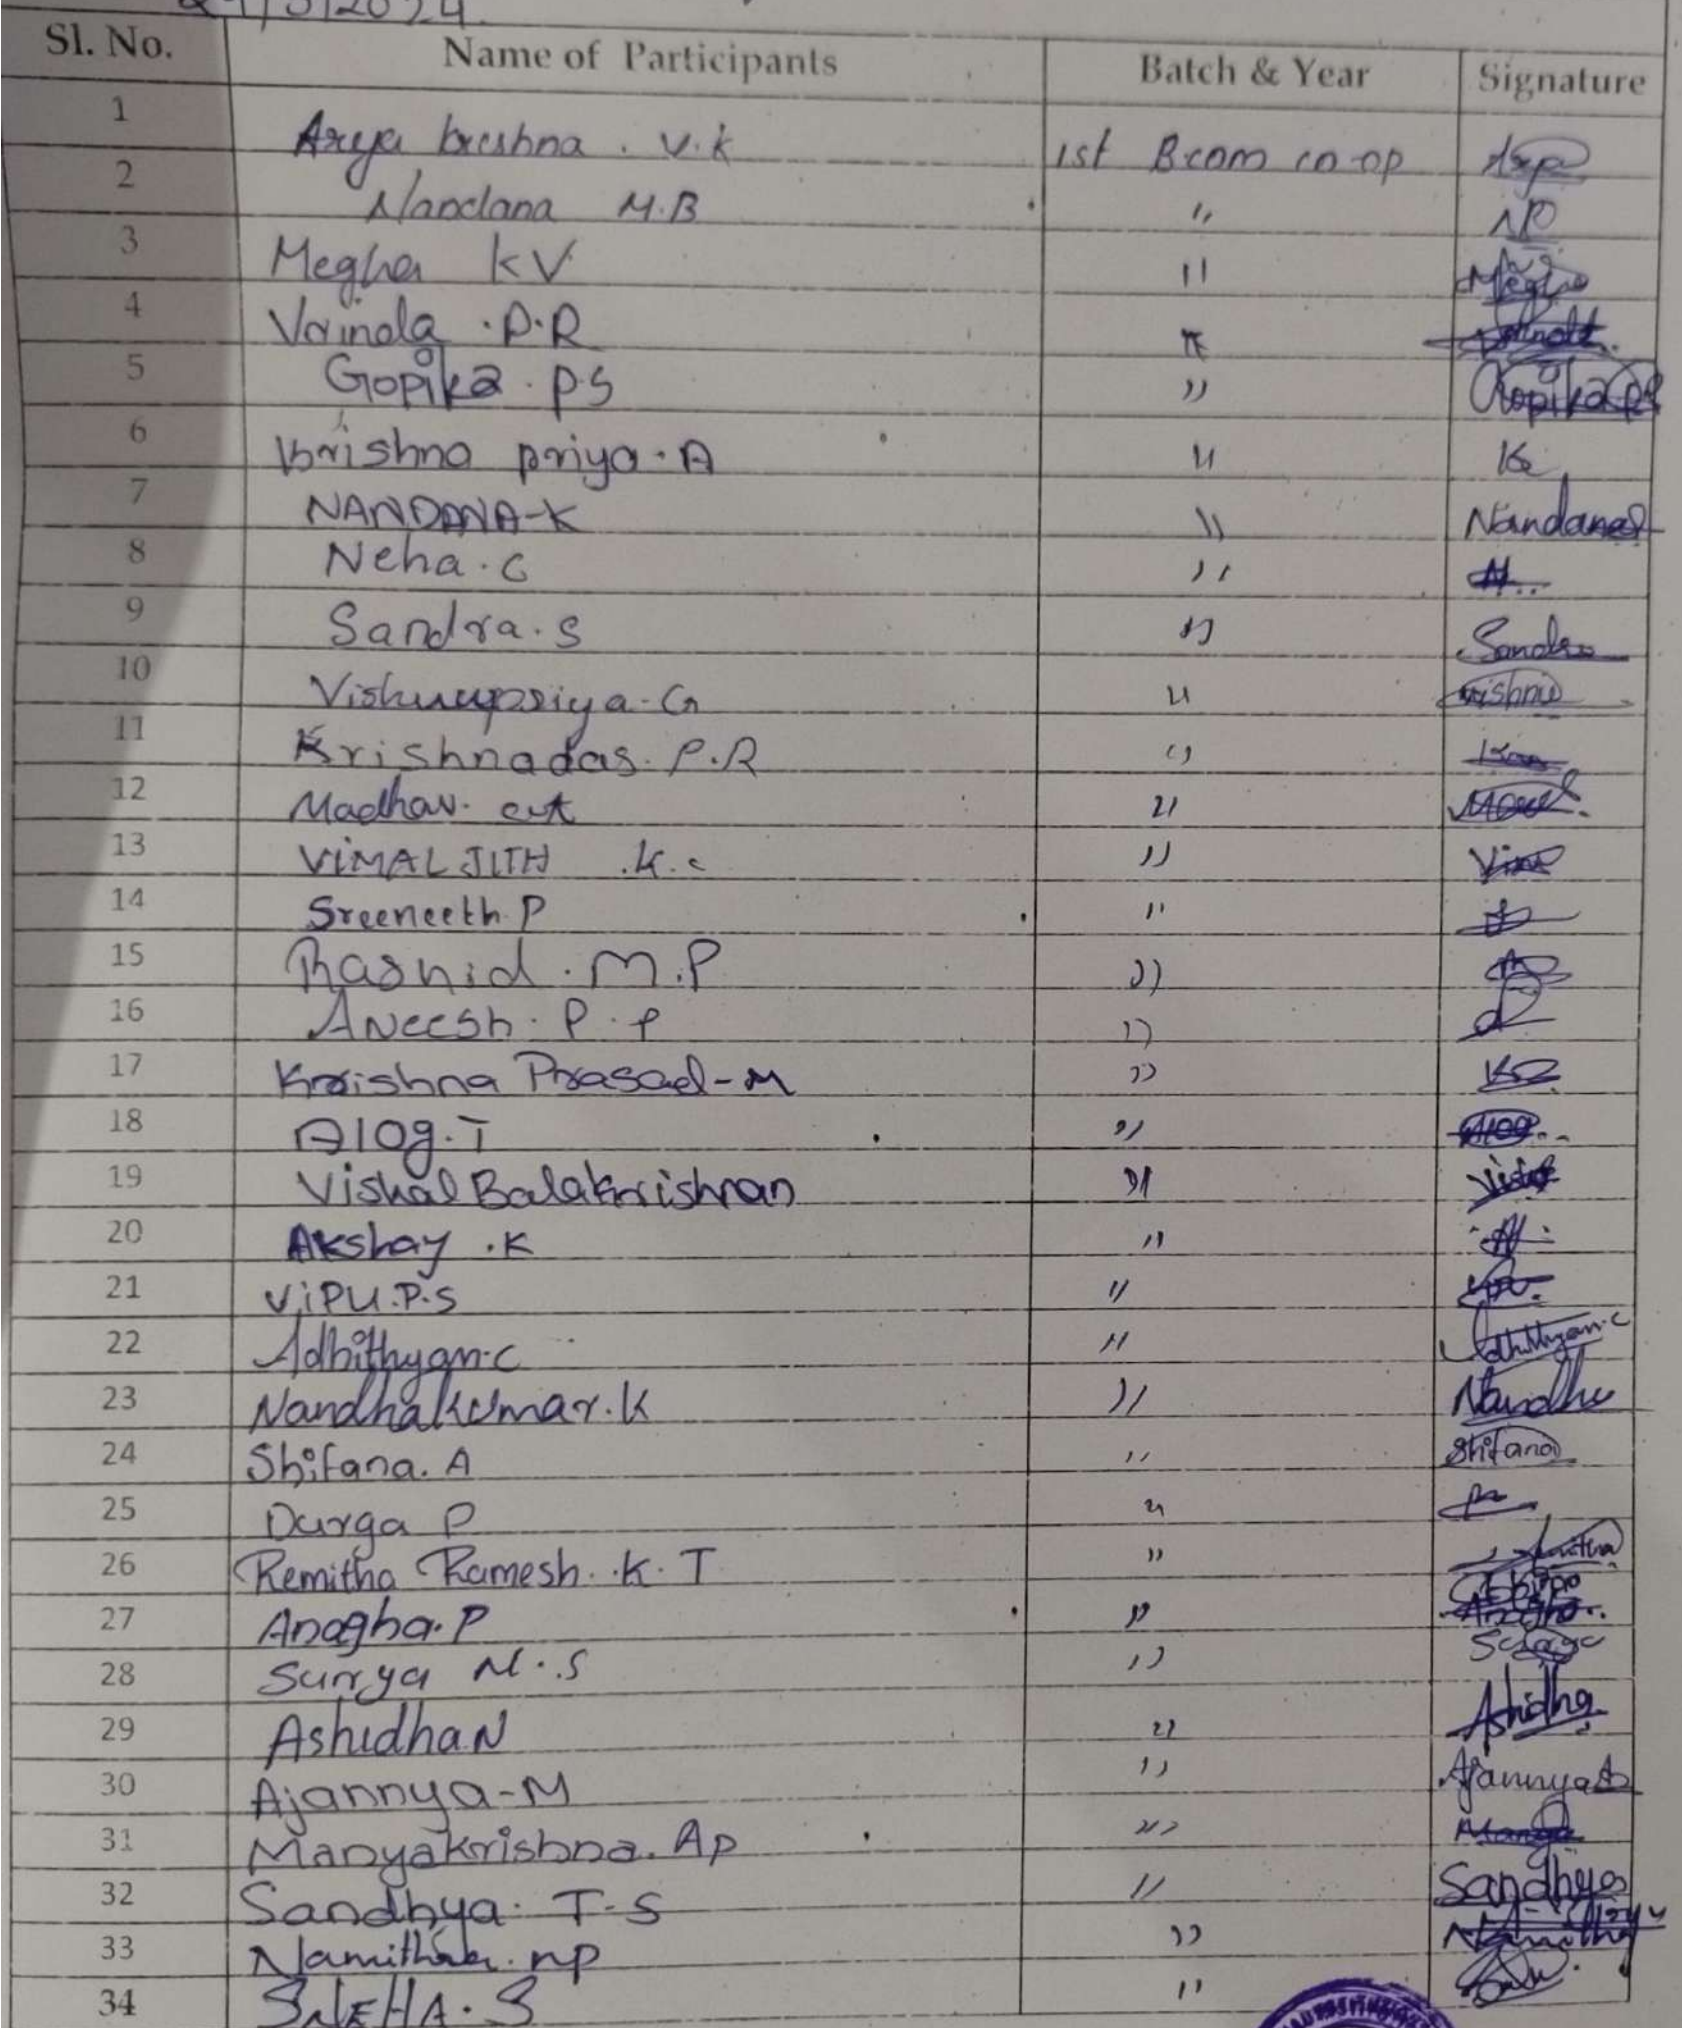 Sl. No. Name of Participants Batch & Year Signature
1 Arya krishna . V.K 1st B.com co-op Arya
2 Nandana M.B "
3 Megha KV " Megha
4 Vrinda .P.R "
5 Gopika . P.S " Gopika PS
6 Krishna priya . A "
7 NANDANA-K " Nandana
8 Neha . C "
9 Sandra . S " Sandra
10 Vishnupriya - G "
11 Krishnadas . P.R "
12 Madhav. "
13 VIMAL JITH .K.c "
14 Sreeneeth P "
15 Rashid . M.P "
16 ANeesh . P . P "
17 Krishna Prasad - M "
18 Alog . T " Alog
19 Vishal Balakrishnan "
20 Akshay .K "
21 ViPU.P.S "
22 Adhithyan.c " Adhithyan.c
23 Nandhakumar.K " Nandhu
24 Shifana. A " Shifana
25 Durga P "
26 Remitha Ramesh. K. T "
27 Anagha. P " Anagha
28 Surya M.S "
29 Ashidha N " Ashidha
30 Ajannya - M " Ajannya
31 Manyakrishna. Ap "
32 Sandhya. T-S " Sandhya
33 Namitha. np "
34 SNEHA . S "